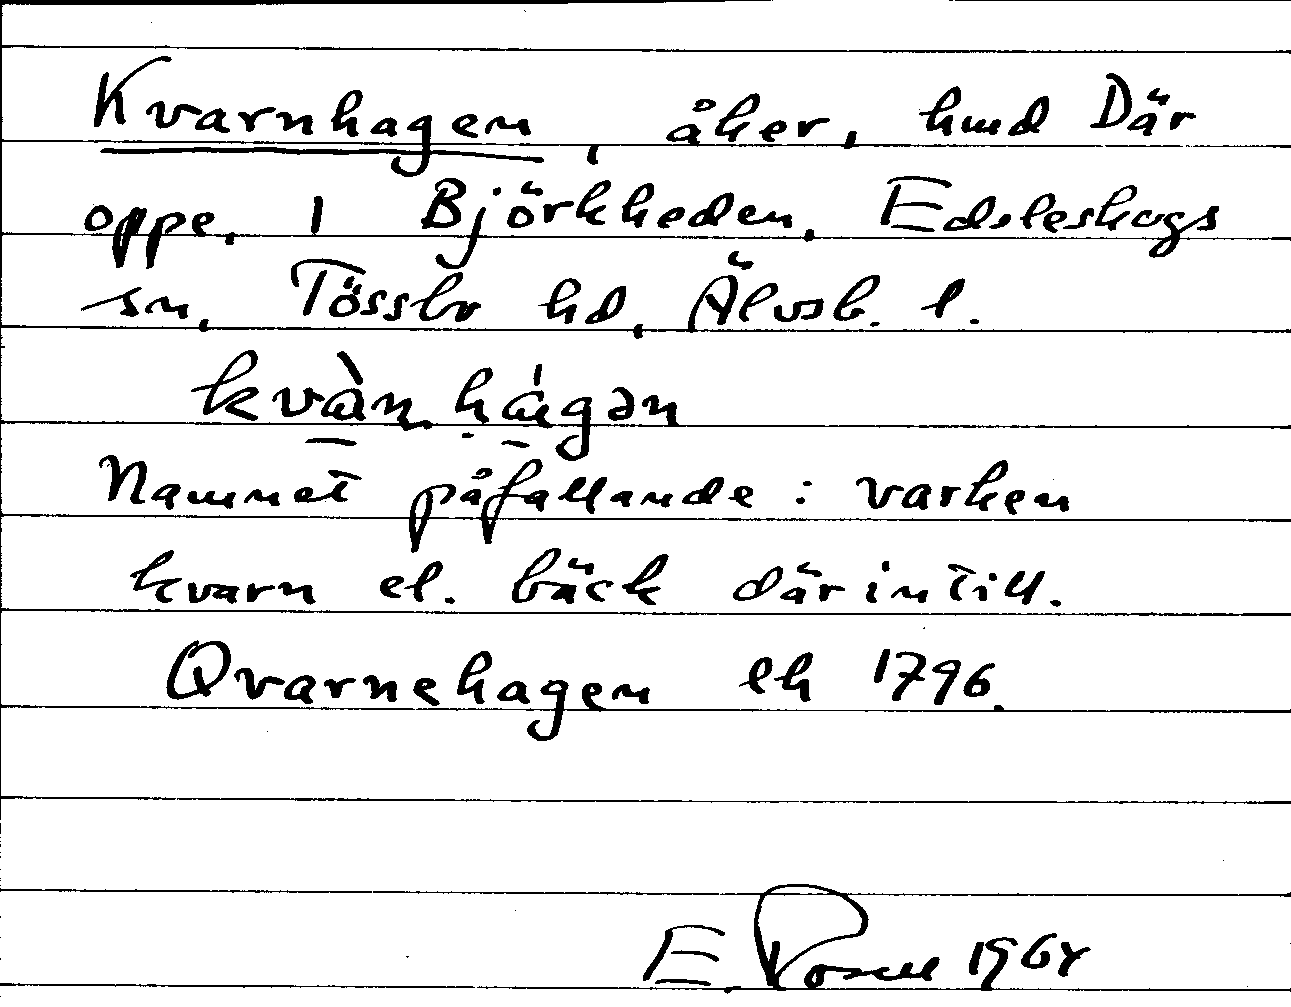 Kvarnhagen, åker, hmd Där
oppe, 1 Björkheden, Edsleskogs
sn, Tössbo hd, Älvsb. l.
kvànhágən
Namnet påfallande: varken
kvarn el. bäck därintill.
Qvarnehagen lh 1796.
E. 1964